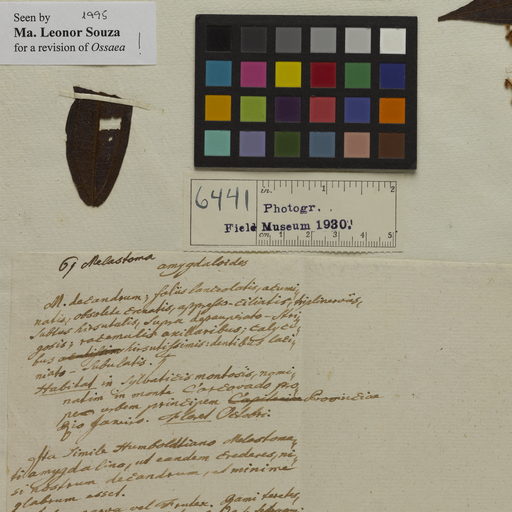 Seen by 1995
Ma. Leonor Souza
for a revision of Ossaea
!
6441
in. 1 2
Photogr.
Field Museum 1930.
cm. 1 2 3 4 5
6) Melastoma amygdaloides
M. decandrum; foliis lanceolatis, acumi-
natis, obsolete crenatis, ciliatis,
subtus hirsutulis, supra
racemulis axillaribus; calyci-
bus hirsutissimis: dentibus laci-
niato - subulatis.
Habitat in sylvaticis montosis, nomi-
natim in monte Corcovado pro
pe urbem principem Provinciae
Rio Janeiro. Floret Octobri
Ita simile Humboldtiano Melastoma-
ti amygdalino, ut eandem crederes, ni-
si nostrum decandrum, et minime
glabrum esset.
vel Frutex. Rami teretes,